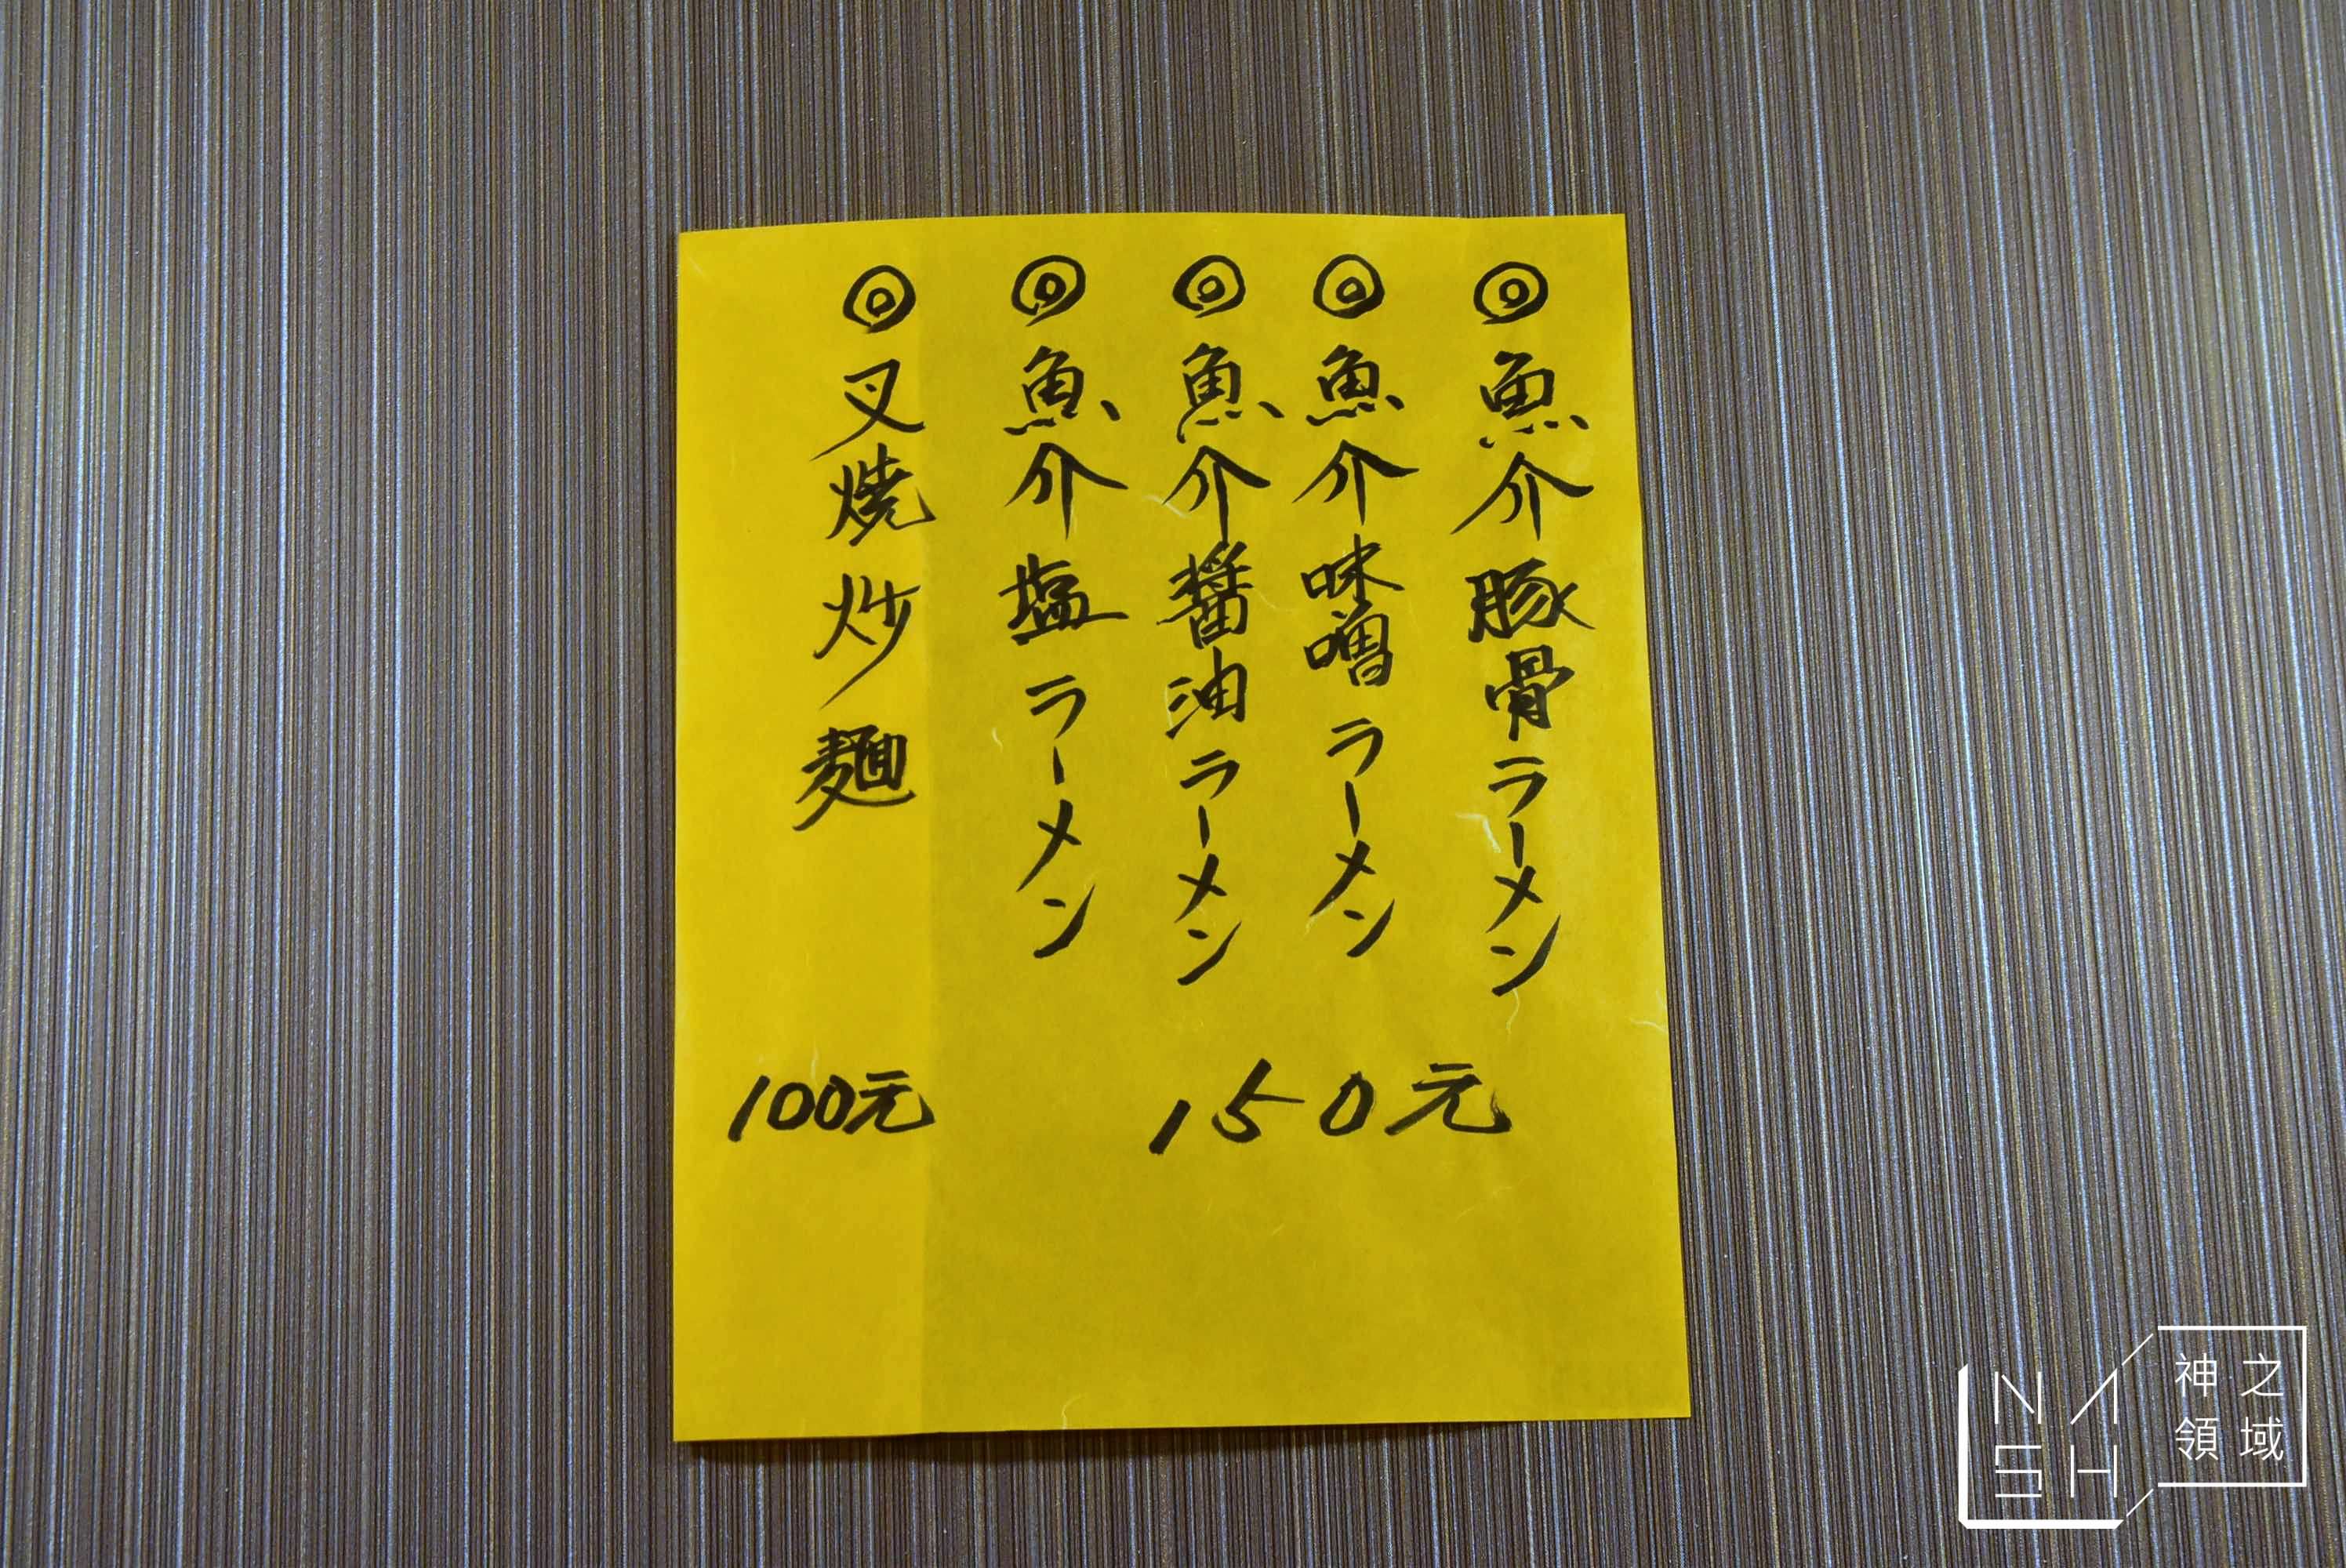 ◎魚介豚骨ラーメン
◎魚介味噌ラーメン
◎魚介醤油ラーメン
◎魚介塩ラーメン
150元
◎叉燒炒麵
100元
NASH
神之
領域